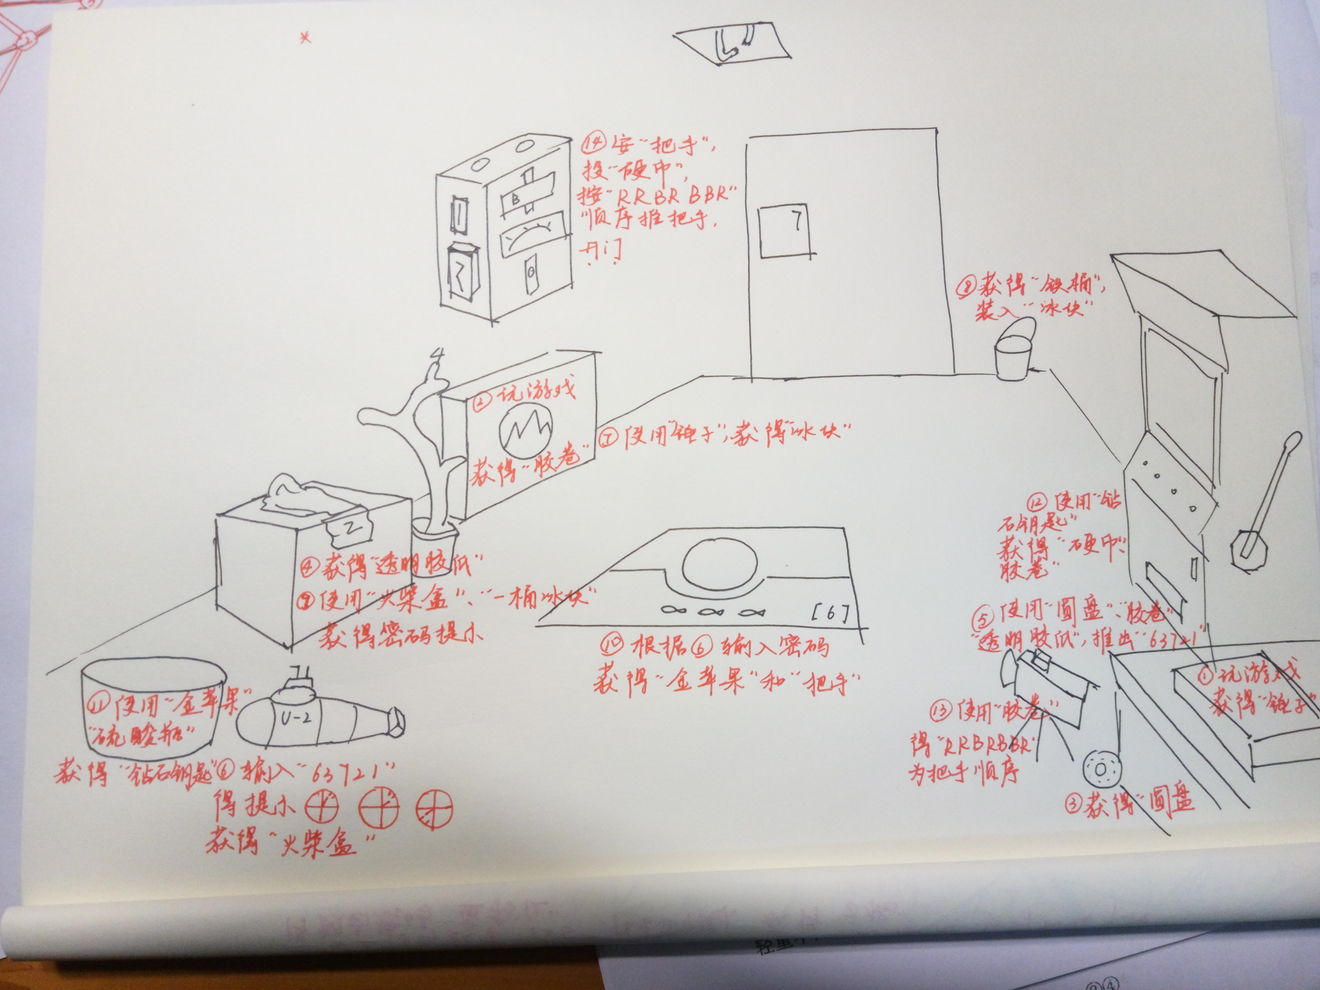 ⑭安"把手",
投"硬币",
按"RRBRBBR"
"顺序推把手,
开门
B
7
⑧获得"铁桶",
装入"冰块"
4
②玩游戏
获得"胶卷"
⑦使用"锤子",获得"冰块"
2
④获得"透明胶纸"
⑨使用"火柴盒"、"一桶冰块"
获得密码提示
⑫使用"钻
石钥匙"
获得"硬币"、
胶卷"
⑤使用"圆盘"、"胶卷"
"透明胶纸",推出"63721"
[6]
⑩根据⑥输入密码
获得"金苹果"和"把手"
①玩游戏
获得"锤子"
⑪使用"金苹果"
"硫酸瓶"
获得"钻石钥匙"
U-2
⑥输入"63721"
得提示
获得"火柴盒"
⑬使用"胶卷"
得"RRBRBBR"
为把手顺序
③获得"圆盘